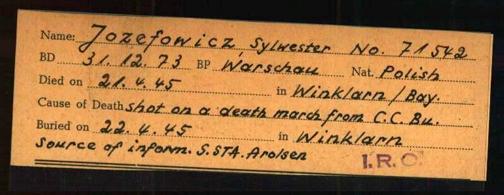 Name: Jozefowicz, Sylwester No. 71542
BD 31.12.73 BP Warschau Nat. Polish
Died on 21.4.45 in Winklarn/Bay.
Cause of Death shot on a death march from C.C. Bu.
Buried on 22.4.45 in Winklarn
Source of inform. S.STA. Arolsen
I.R.O.